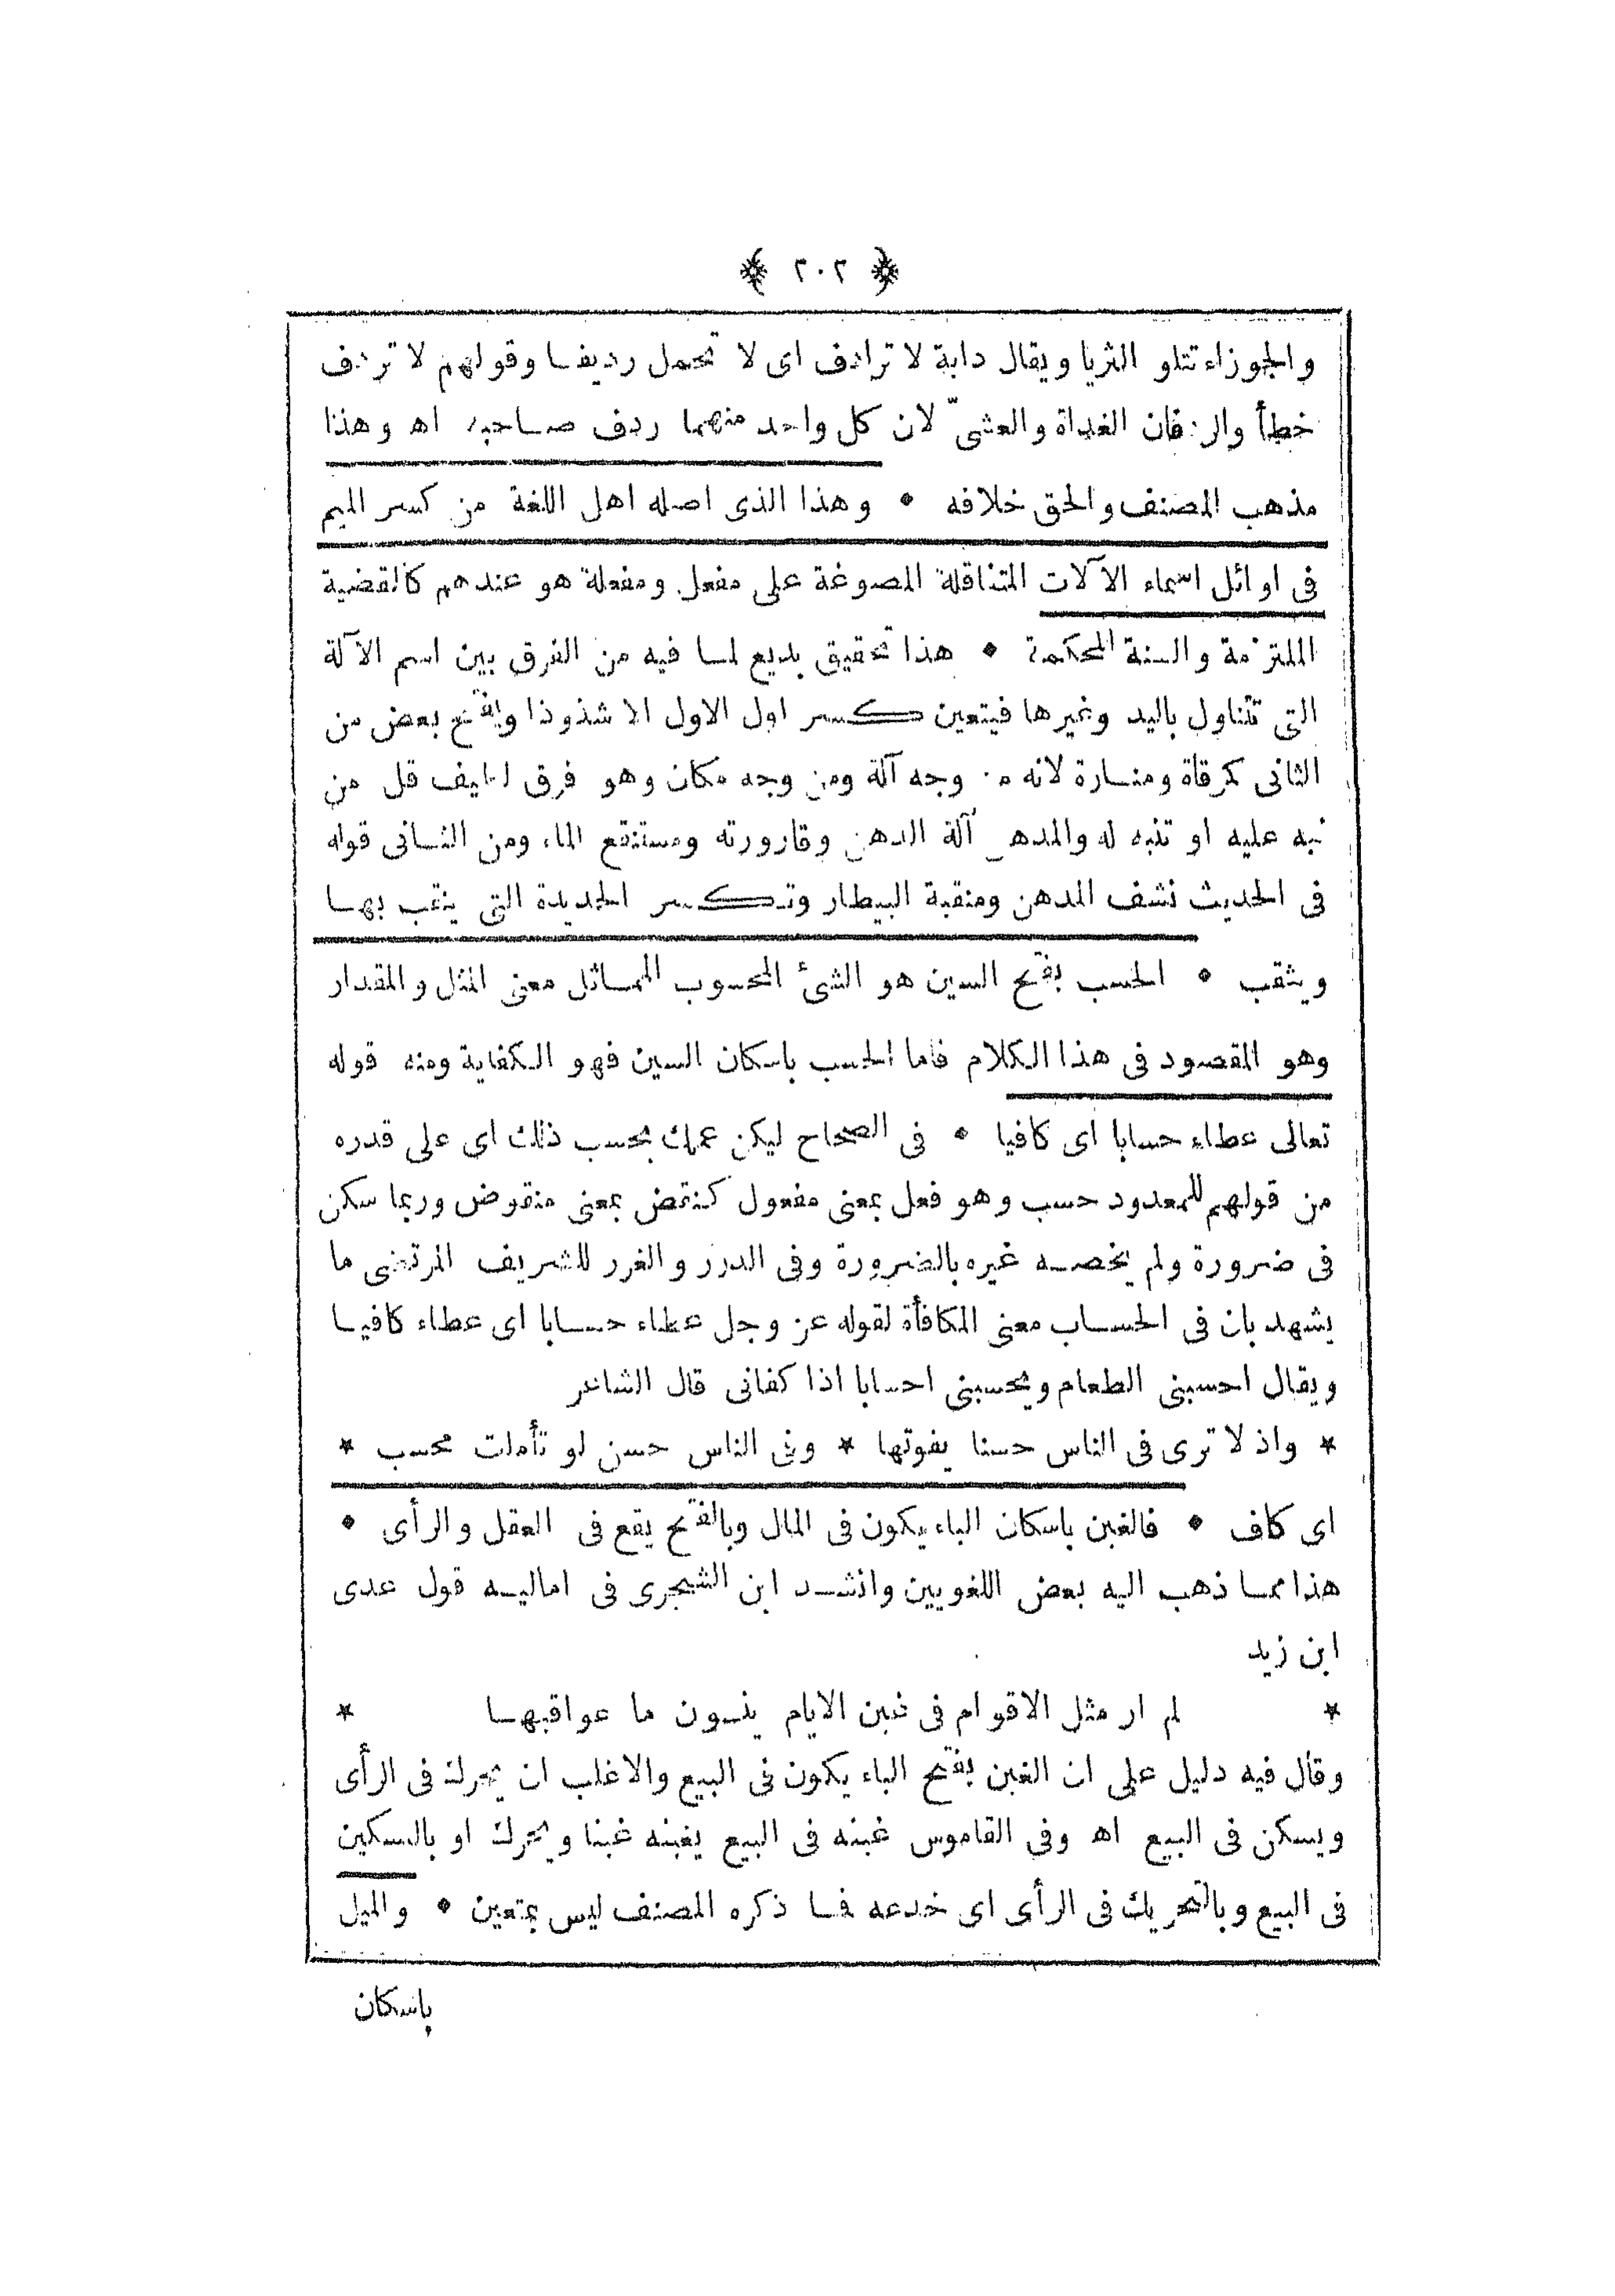 ﴿ ٢٠٢ ﴾
والجوزاء تتلو الثريا ويقال دابة لا ترادف اى لا تحمل رديفا وقولهم لا تردف
خطأ والردفان الغداة والعشىّ لان كل واحد منهما ردف صاحبه اه وهذا
مذهب المصنف والحق خلافه * وهذا الذى اصله اهل اللغة من كسر الميم
فى اوائل اسماء الآلات المتناقلة المصوغة على مفعل ومفعلة هو عندهم كالقضية
الملتزمة والسنة المحكمة * هذا تحقيق بديع لما فيه من الفرق بين اسم الآلة
التى تتناول باليد وغيرها فيتعين كسر اول الاول الا شذوذا ويفتح بعض من
الثانى كمرقاة ومنارة لانه من وجه آلة ومن وجه مكان وهو فرق لطيف قل من
نبه عليه او تنبه له والمدهن آلة الدهن وقارورته ومستنقع الماء ومن الثانى قوله
فى الحديث نشف المدهن ومنقبة البيطار وتكسر الحديدة التى ينقب بها
ويثقب * الحسب بفتح السين هو الشئ المحسوب المماثل معنى المثل والمقدار
وهو المقصود فى هذا الكلام فاما الحسب باسكان السين فهو الكفاية ومنه قوله
تعالى عطاء حسابا اى كافيا * فى الصحاح ليكن عملك بحسب ذلك اى على قدره
من قولهم للمعدود حسب وهو فعل بمعنى مفعول كنقض بمعنى منقوض وربما سكن
فى ضرورة ولم يخصه غيره بالضرورة وفى الدرر والغرر للشريف المرتضى ما
يشهد بان فى الحساب معنى المكافأة لقوله عز وجل عطاء حسابا اى عطاء كافيا
ويقال احسبنى الطعام ويحسبنى احسابا اذا كفانى قال الشاعر
* واذ لا ترى فى الناس حسنا يفوتها * وفى الناس حسن لو تأملت محسب *
اى كاف * فالغبن باسكان الباء يكون فى المال وبالفتح يقع فى العقل والرأى *
هذا مما ذهب اليه بعض اللغويين وانشد ابن الشجرى فى اماليه قول عدى
ابن زيد
* لم ار مثل الاقوام فى غبن الايام ينسون ما عواقبها *
وقال فيه دليل على ان الغبن بفتح الباء يكون فى البيع والاغلب ان يحرك فى الرأى
ويسكن فى البيع اه وفى القاموس غبنه فى البيع يغبنه غبنا ويحرك او بالسكين
فى البيع وبالتحريك فى الرأى اى خدعه فما ذكره المصنف ليس بمتعين * والميل
باسكان